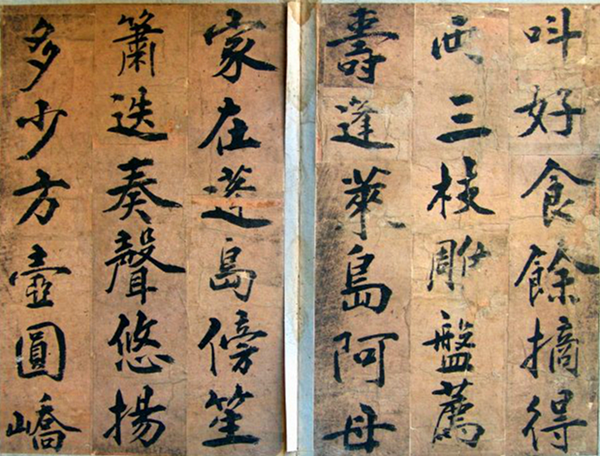 呌好食餘摘得
両三枝雕盤薦
壽蓬萊島阿母
家在蓬島傍笙
簫迭奏聲悠揚
多少方壺圓嶠